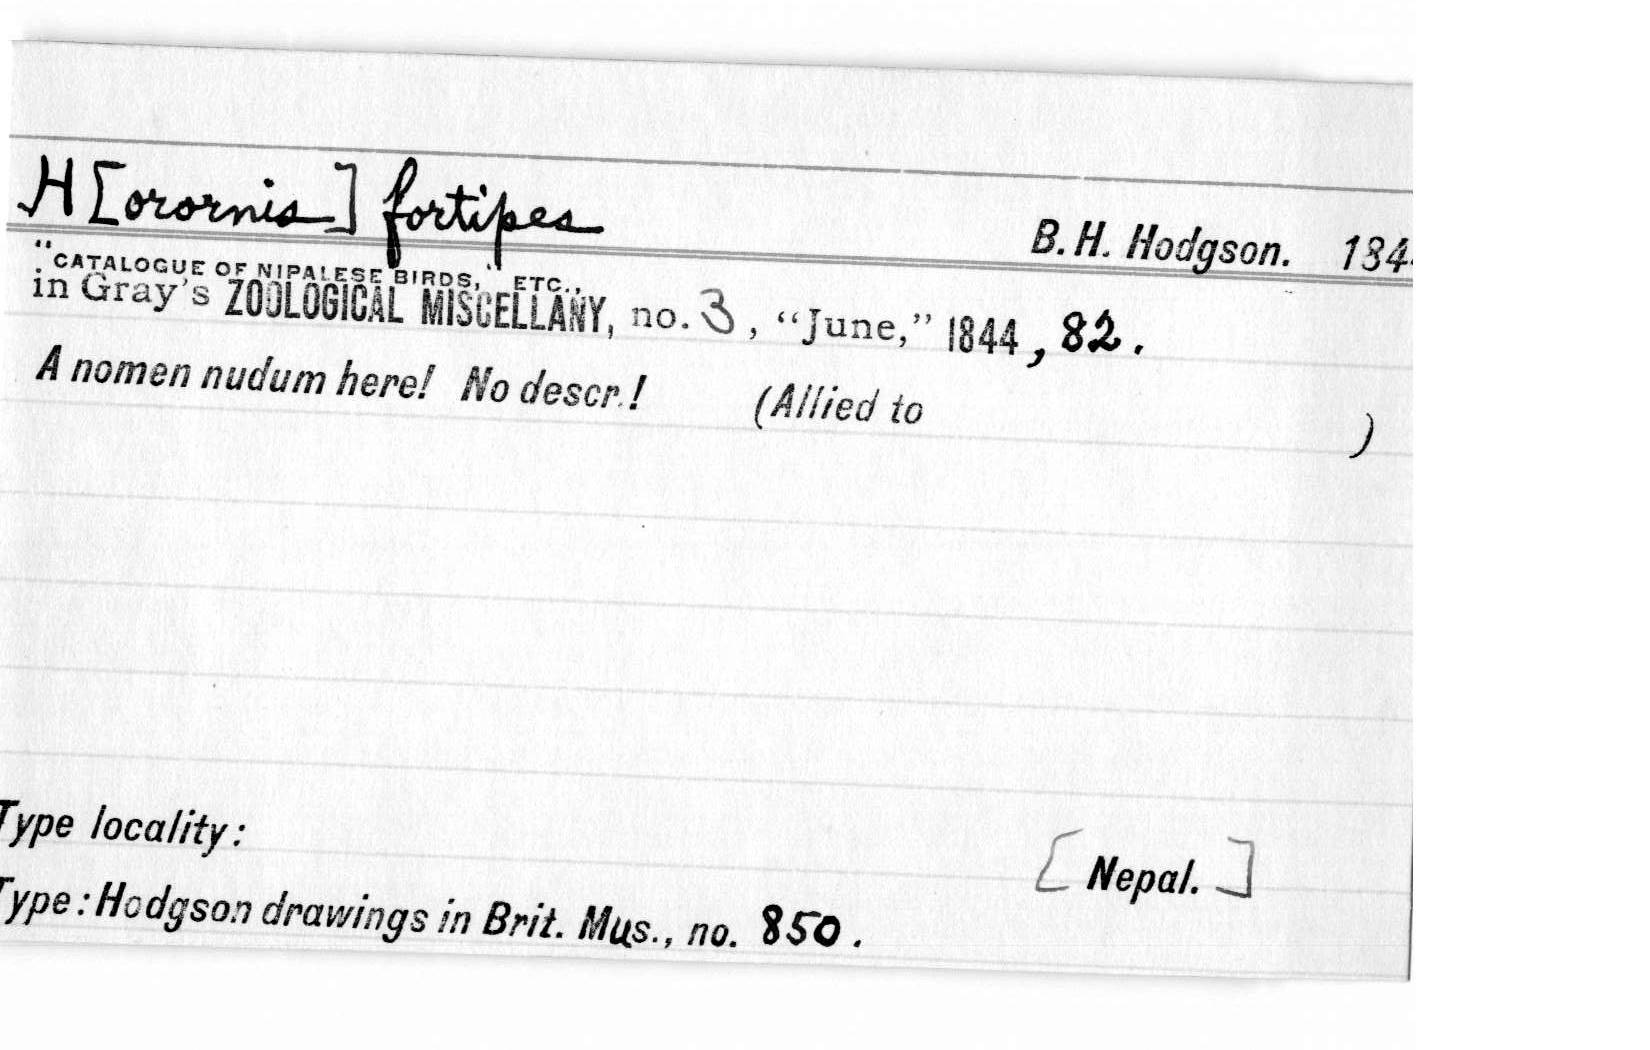 H[orornis] fortipes
B. H. Hodgson. 184
"CATALOGUE OF NIPALESE BIRDS," ETC.,
in Gray's ZOOLOGICAL MISCELLANY, no. 3, "June," 1844, 82.
A nomen nudum here! No descr.! (Allied to )
Type locality: [Nepal.]
Type: Hodgson drawings in Brit. Mus., no. 850.